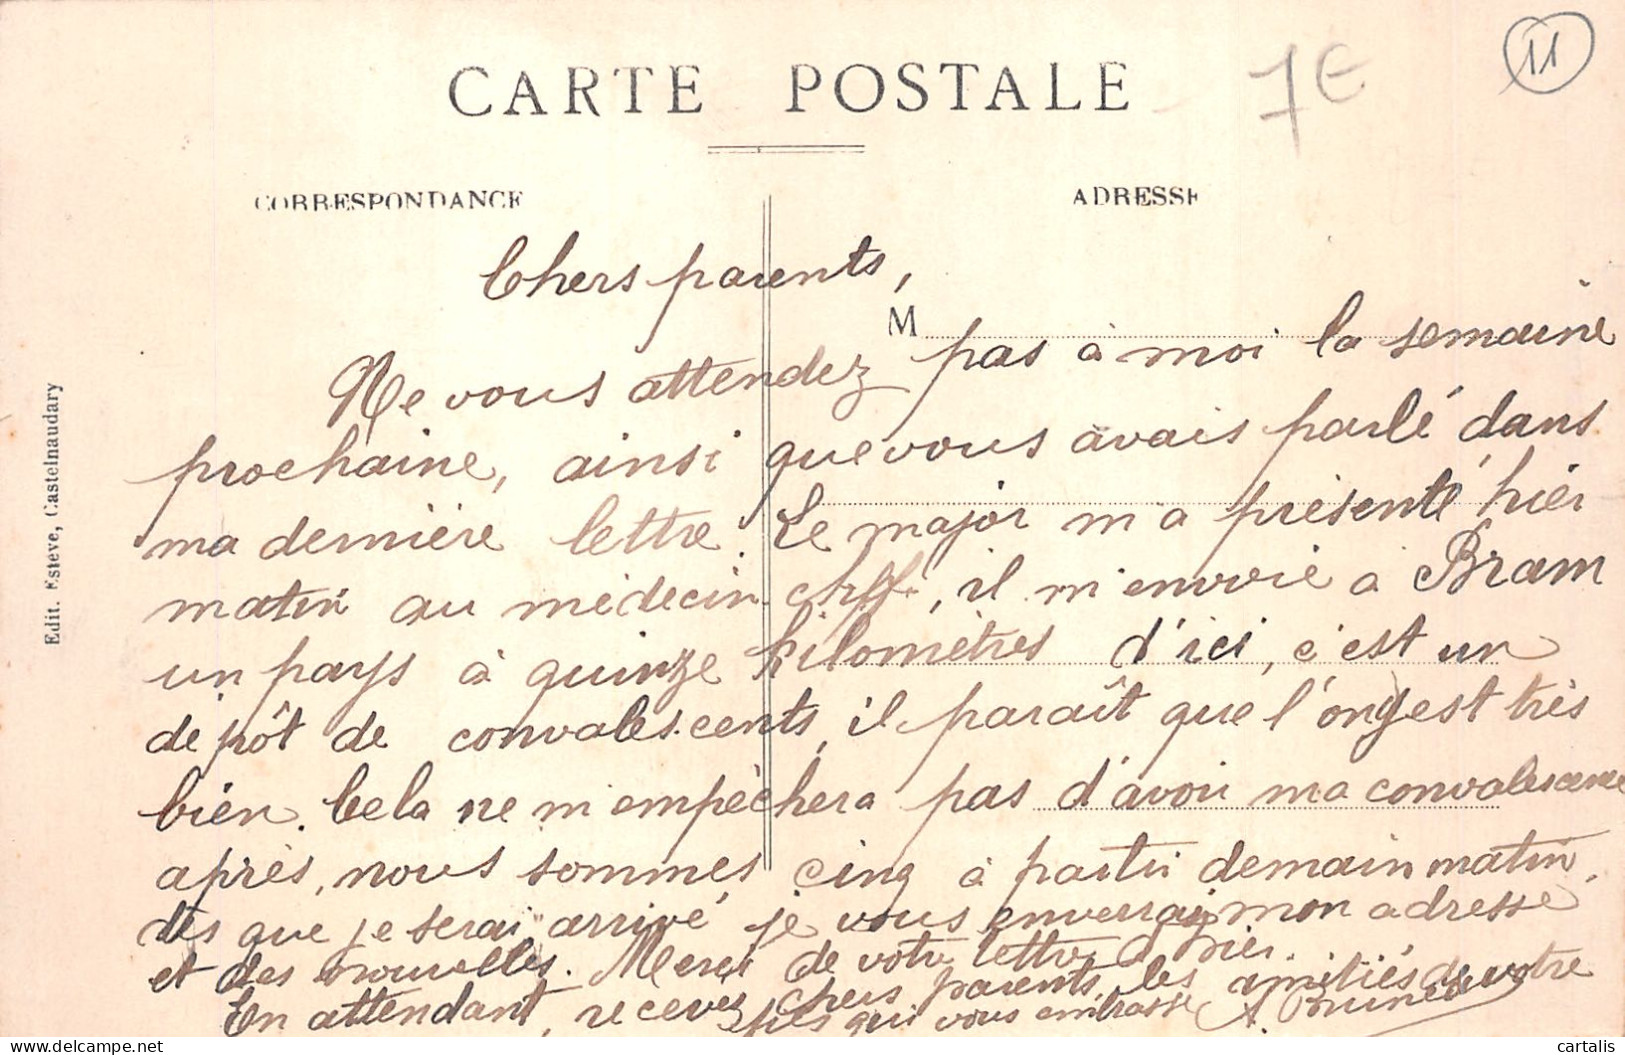 CARTE POSTALE
7€
11
CORRESPONDANCE
ADRESSE
Edit. Esteve, Castelnaudary
M
Chers parents,
Ne vous attendez pas à moi la semaine
prochaine, ainsi que vous avais parlé dans
ma dernière lettre. Le major m'a présenté hier
matin au médecin chef, il m'envoie à Bram
un pays à quinze kilomètres d'ici, c'est un
dépôt de convalescents, il paraît que l'on y est très
bien. Cela ne m'empêchera pas d'avoir ma convalescence
après, nous sommes cinq à partir demain matin,
dès que je serai arrivé, je vous enverrai mon adresse
et des nouvelles. Merci de votre lettre d'hier.
En attendant, recevez chers parents les amitiés de votre
fils qui vous embrasse A.
cartalis